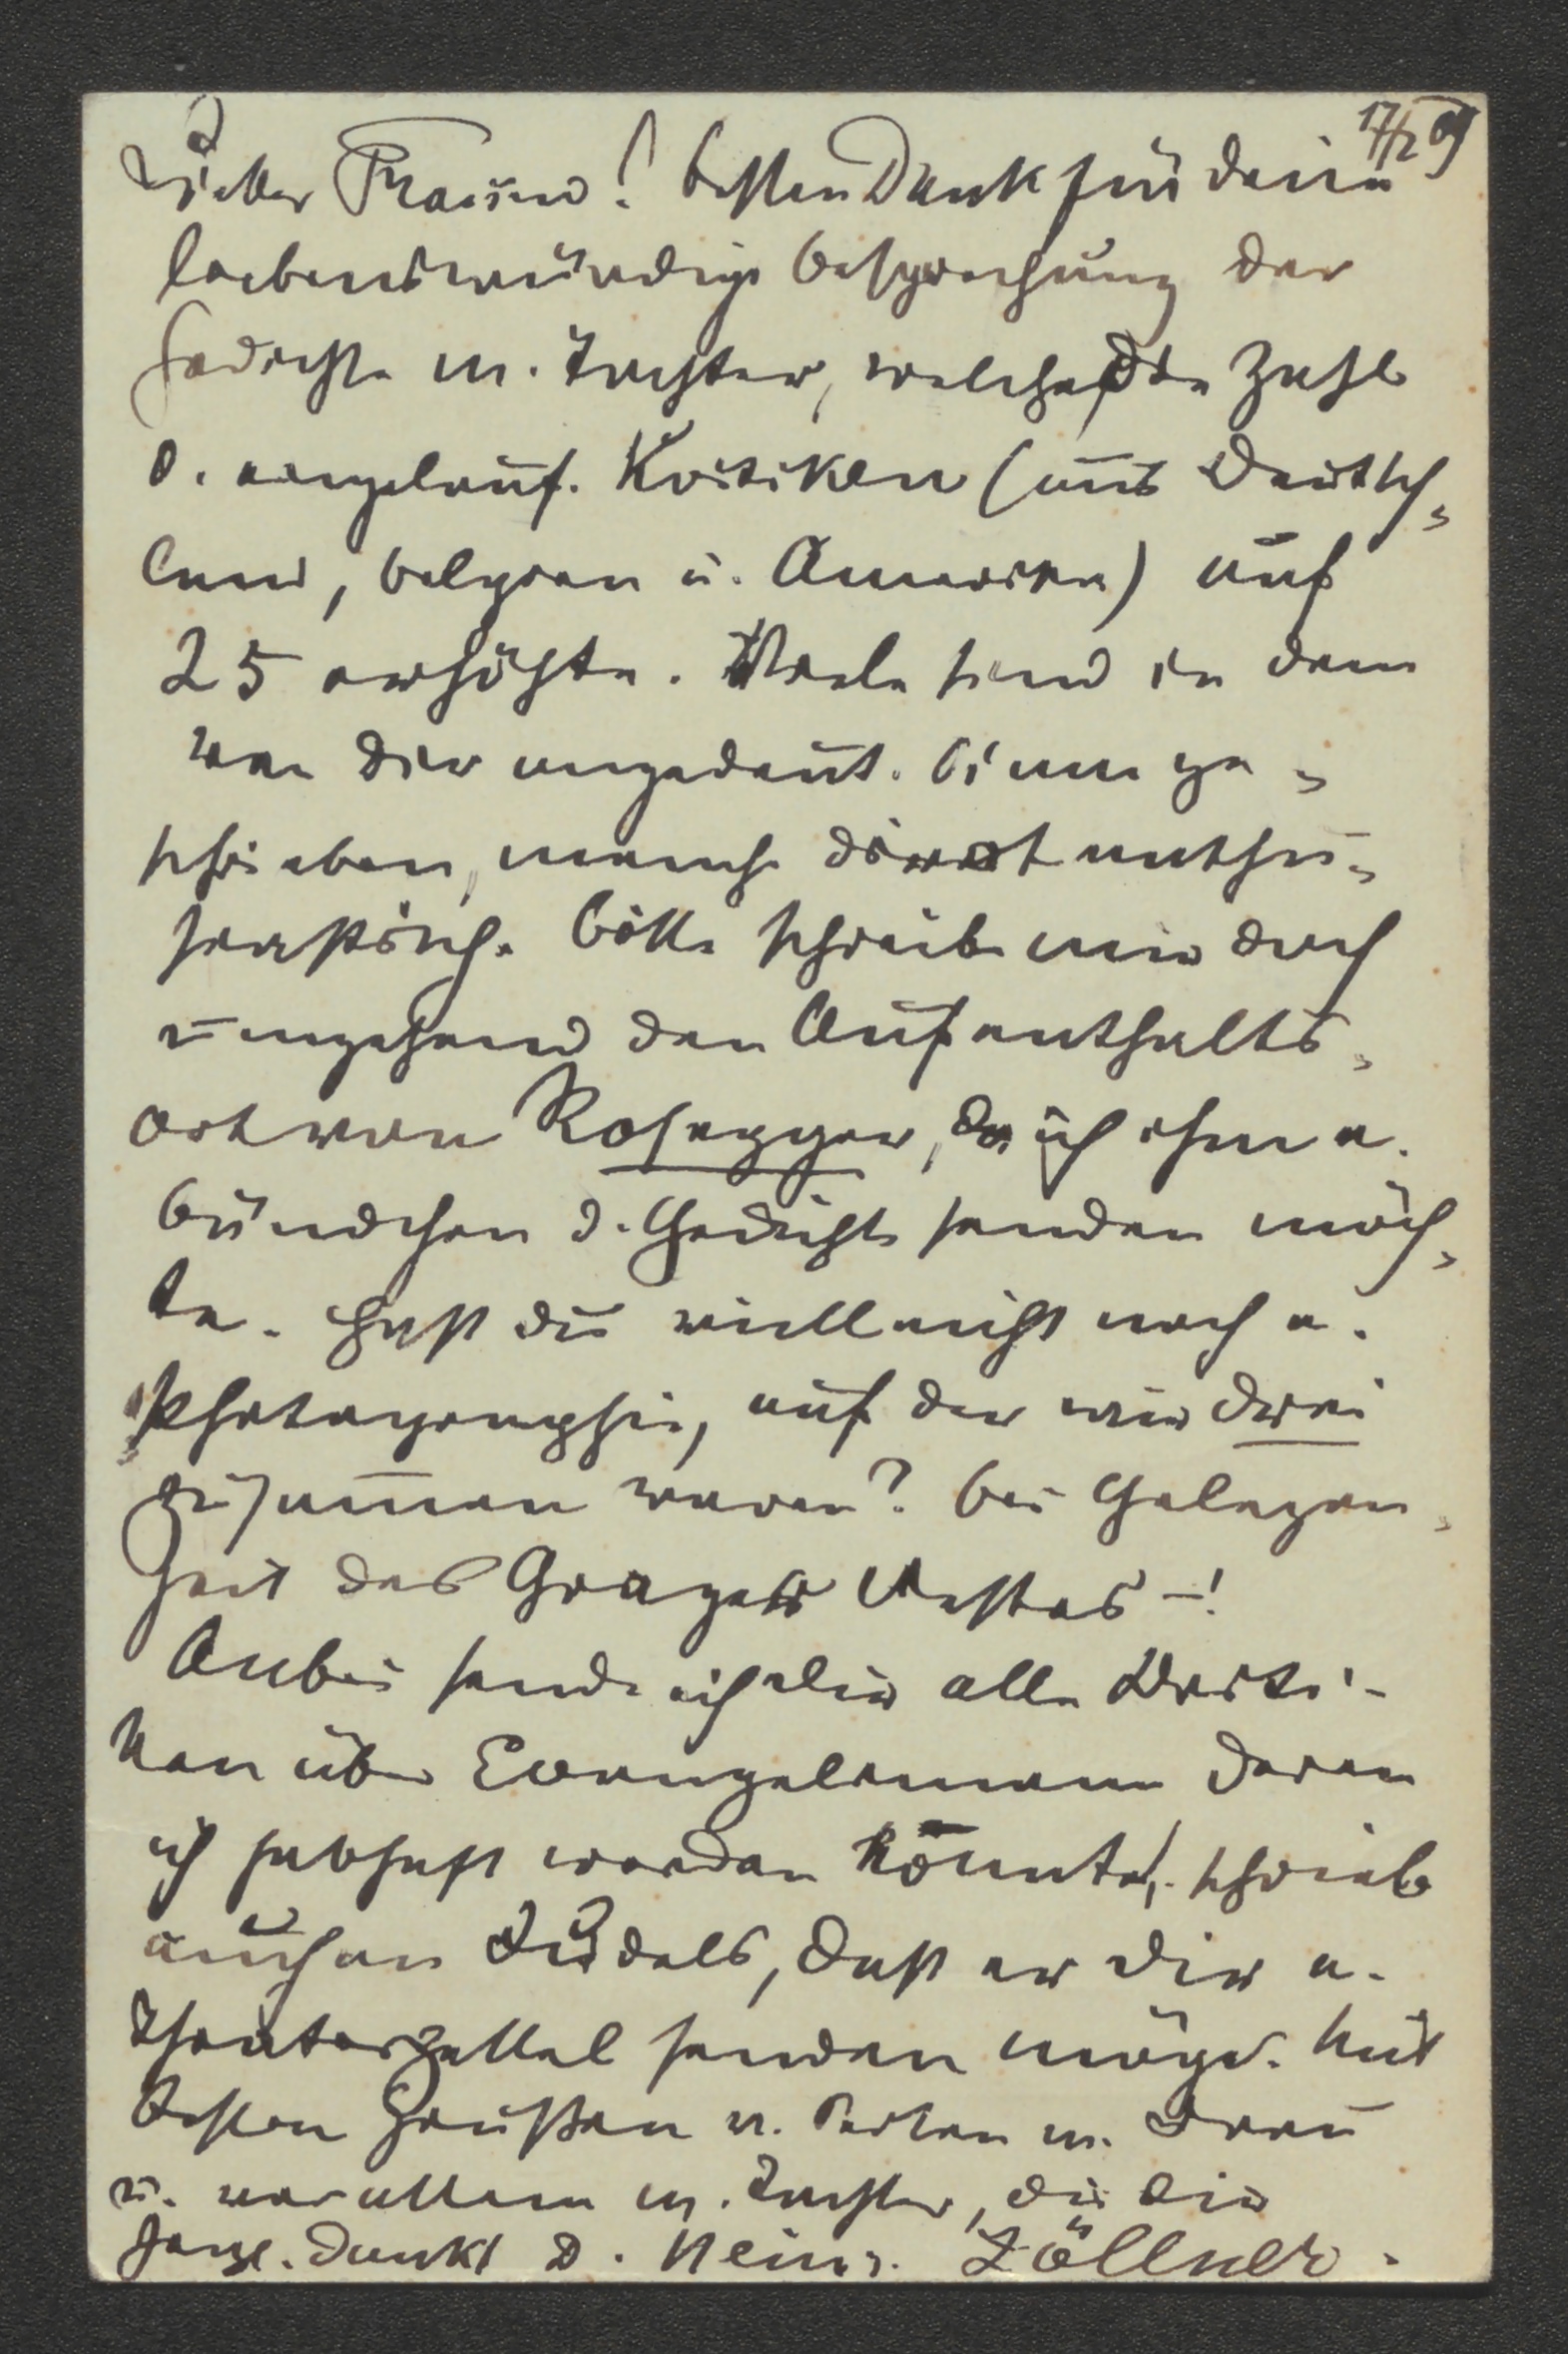 17/12 09
Lieber Freund! Besten Dank für deine
liebenswürdige Besprechung der
Gedichte m. Tochter, welche die Zahl
d. eingelauf. Kritiken (aus Deutsch-
land, Belgien u. Amerika) auf
25 erhöhte. Viele sind in dem
von dir angedeut. Sinne ge-
schrieben, manche direct enthu-
siastisch. Bitte schreib mir doch
umgehend den Aufenthalts-
ort von Rosegger, da ich ihm e.
Bändchen d. Gedichte senden möch-
te. Hast du vielleicht noch e.
Photographie, auf der wir drei
zusammen waren? Bei Gelegen-
heit des Grazer Festes –!
Anbei sende ich dir alle Kriti-
ken über Evangelimann deren
ich habhaft werden konnte, schrieb
auch an, daß er dir e.
Theaterzettel senden möge. Mit
besten Grüßen v. Seiten m. Frau
u. vor allem m. Tochter, die dir
herzl. dankt D. Heinr. Zöllner.